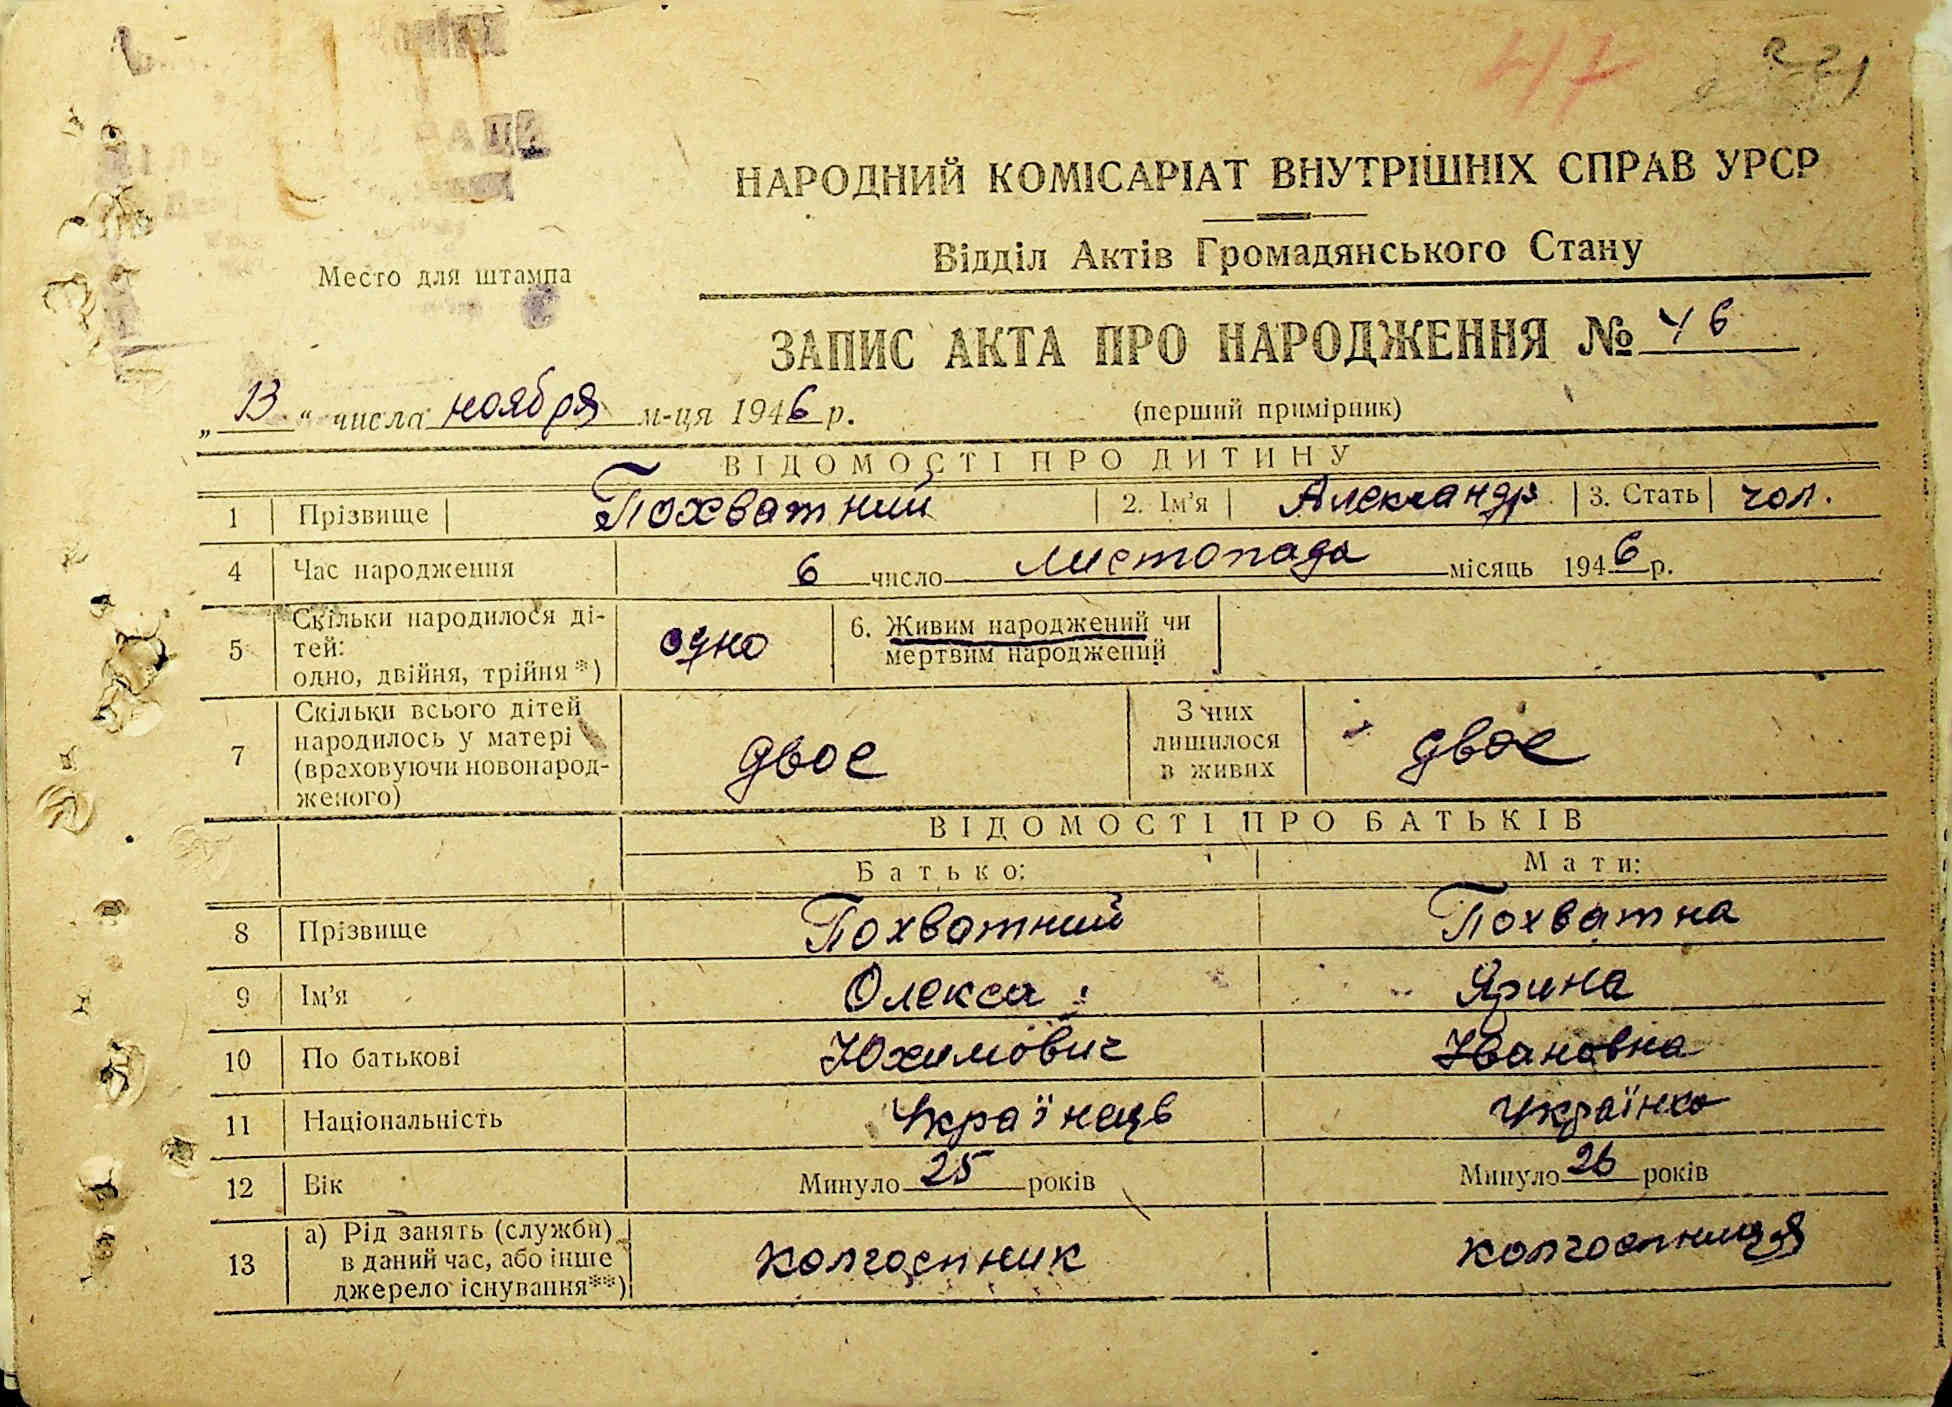 47
НАРОДНИЙ КОМІСАРІАТ ВНУТРІШНІХ СПРАВ УРСР
Відділ Актів Громадянського Стану
Место для штампа
ЗАПИС АКТА ПРО НАРОДЖЕННЯ № 46
„13“ числа ноября м-ця 1946 р.
(перший примірник)
ВІДОМОСТІ ПРО ДИТИНУ
1 Прізвище Похватний 2. Ім'я Александр 3. Стать чол.
4 Час народження 6 число листопада місяць 1946 р.
5 Скільки народилося ді-
тей:
одно, двійня, трійня *)
одно
6. Живим народжений чи
мертвим народжений
7 Скільки всього дітей
народилось у матері
(враховуючи новонарод-
женого)
двое
З них
лишилося
в живих
двое
ВІДОМОСТІ ПРО БАТЬКІВ
Батько: Мати:
8 Прізвище Похватний Похватна
9 Ім'я Олекса Ярина
10 По батькові Юхимович Ивановна
11 Національність Українець Українка
12 Вік Минуло 25 років Минуло 26 років
13 а) Рід занять (служби)
в даний час, або інше
джерело існування**)
колгоспник колгоспниця